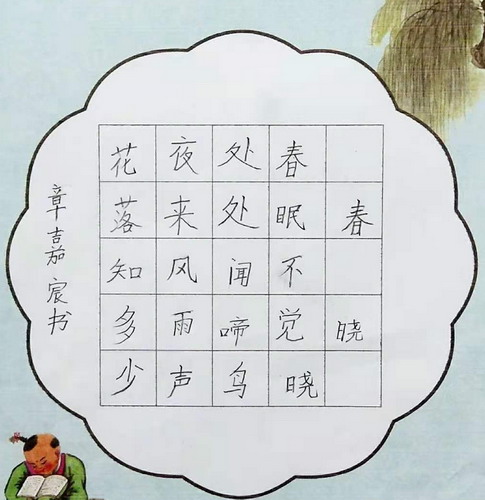 春晓
春眠不觉晓
处处闻啼鸟
夜来风雨声
花落知多少
章嘉宸书